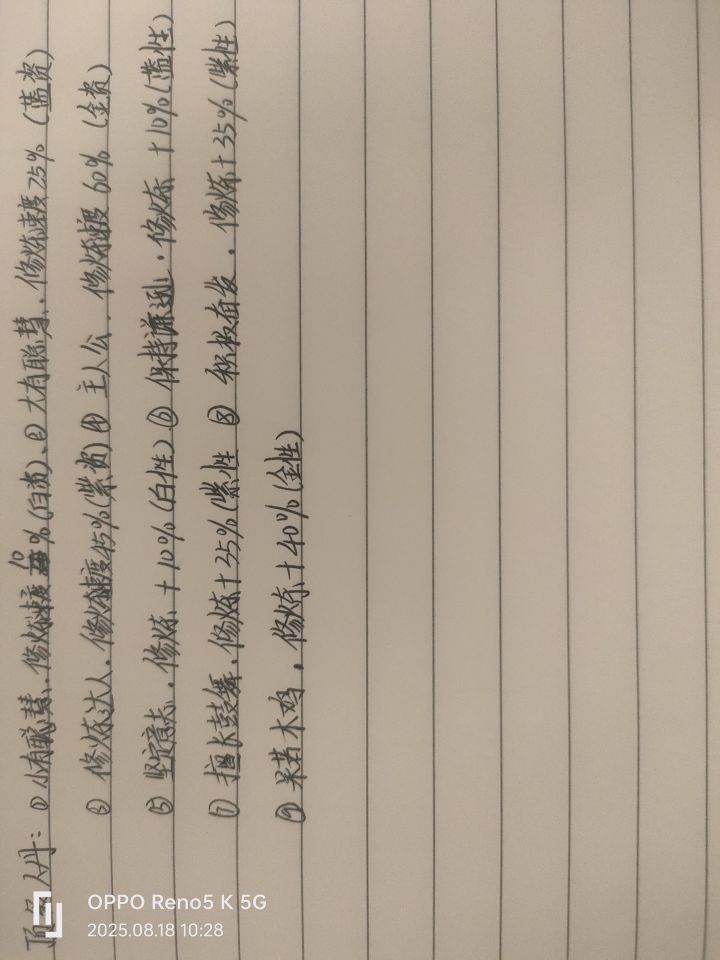 人丹：①小有聪慧、修炼速度10%(白资)、②大有聪慧、修炼速度25%(蓝资)
③修炼达人、修炼速度45%(紫资)④主人公、修炼速度60%(金资)
⑤坚定意志、修炼+10%(白性)⑥保持、修炼+10%(蓝性)
⑦擅长鼓舞、修炼+35%(紫性 ⑧积极奋发、修炼+35%(紫性)
⑨呆若木鸡、修炼+40%(金性)
OPPO Reno5 K 5G
2025.08.18 10:28